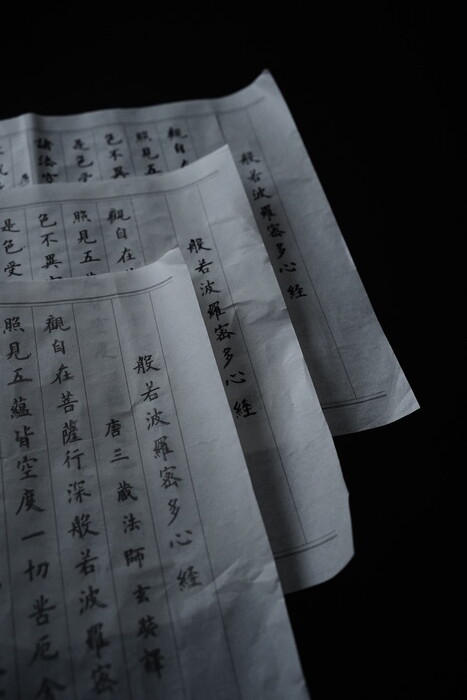 般若波羅密多心経
唐三蔵法師玄奘譯
觀自在菩薩行深般若波羅密
照見五蘊皆空度一切苦厄舍
般若波羅密多心経
觀自在
照見五
色不異
是色受
般若波羅密多心経
觀自
照見五
色不異
是色